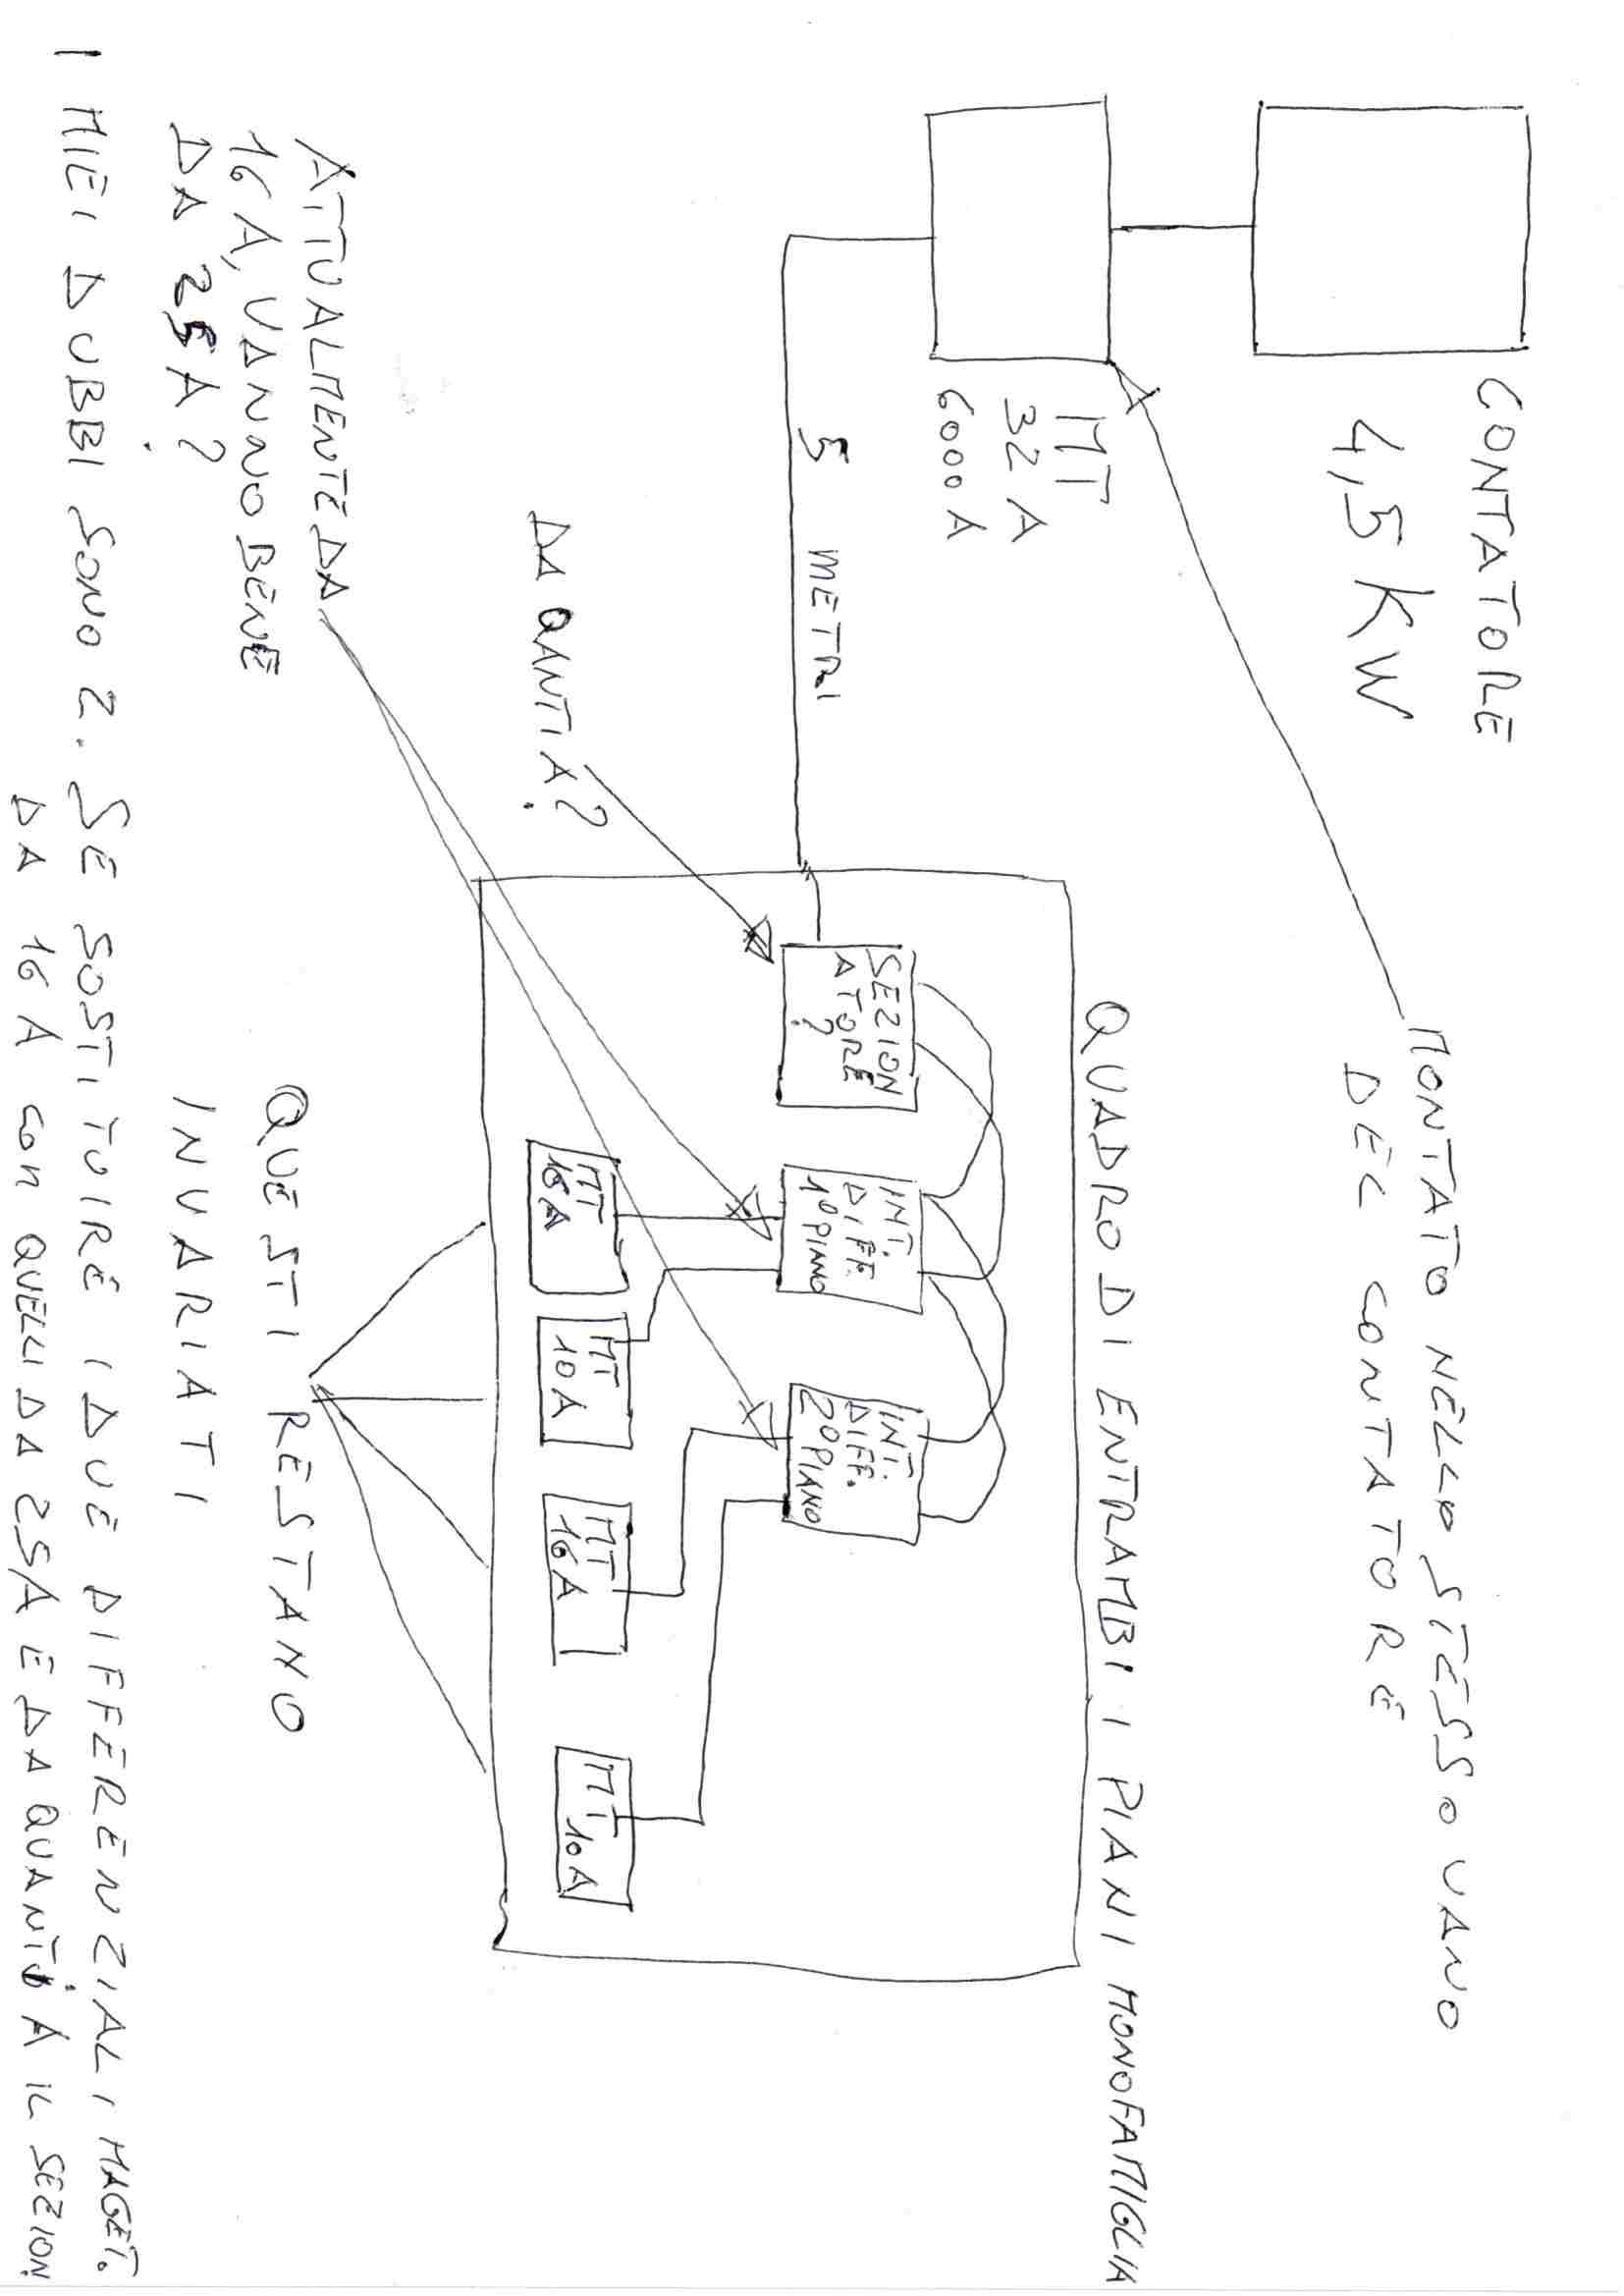 CONTATORE
4,5 KW
MT
32 A
6000 A
MONTATO NELLO STESSO VANO
DEL CONTATORE
5 METRI
QUADRO DI ENTRAMBI I PIANI MONOFAMIGLIA
DA QANTI A?
SEZION
ATORE
?
INT.
DIFF.
1º PIANO
INT.
DIFF.
2º PIANO
MT
16A
MT
10A
MT
16A
MT
10A
ATTUALMENTE DA
16 A, VANNO BENE
DA 25A?
QUESTI RESTANO
INVARIATI
I MIEI DUBBI SONO 2. SE SOSTITUIRE I DUE DIFFERENZIALI MAGET.
DA 16 A con QUELLI DA 25A E DA QUANTI A IL SEZION